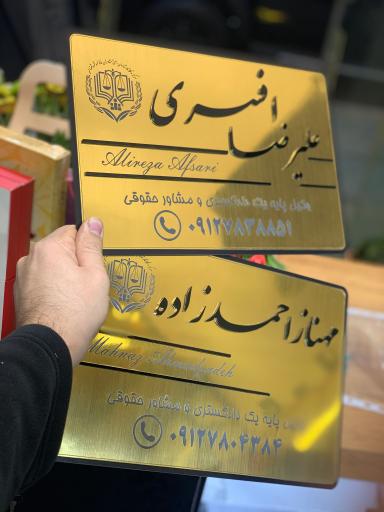 علیرضا افسری
Alireza Afsari
وکیل پایه یک دادگستری و مشاور حقوقی
۰۹۱۲۷۸۳۸۸۵۱
مهناز احمدزاده
Mahnaz Ahmadzadeh
وکیل پایه یک دادگستری و مشاور حقوقی
۰۹۱۲۷۸۰۴۳۸۴